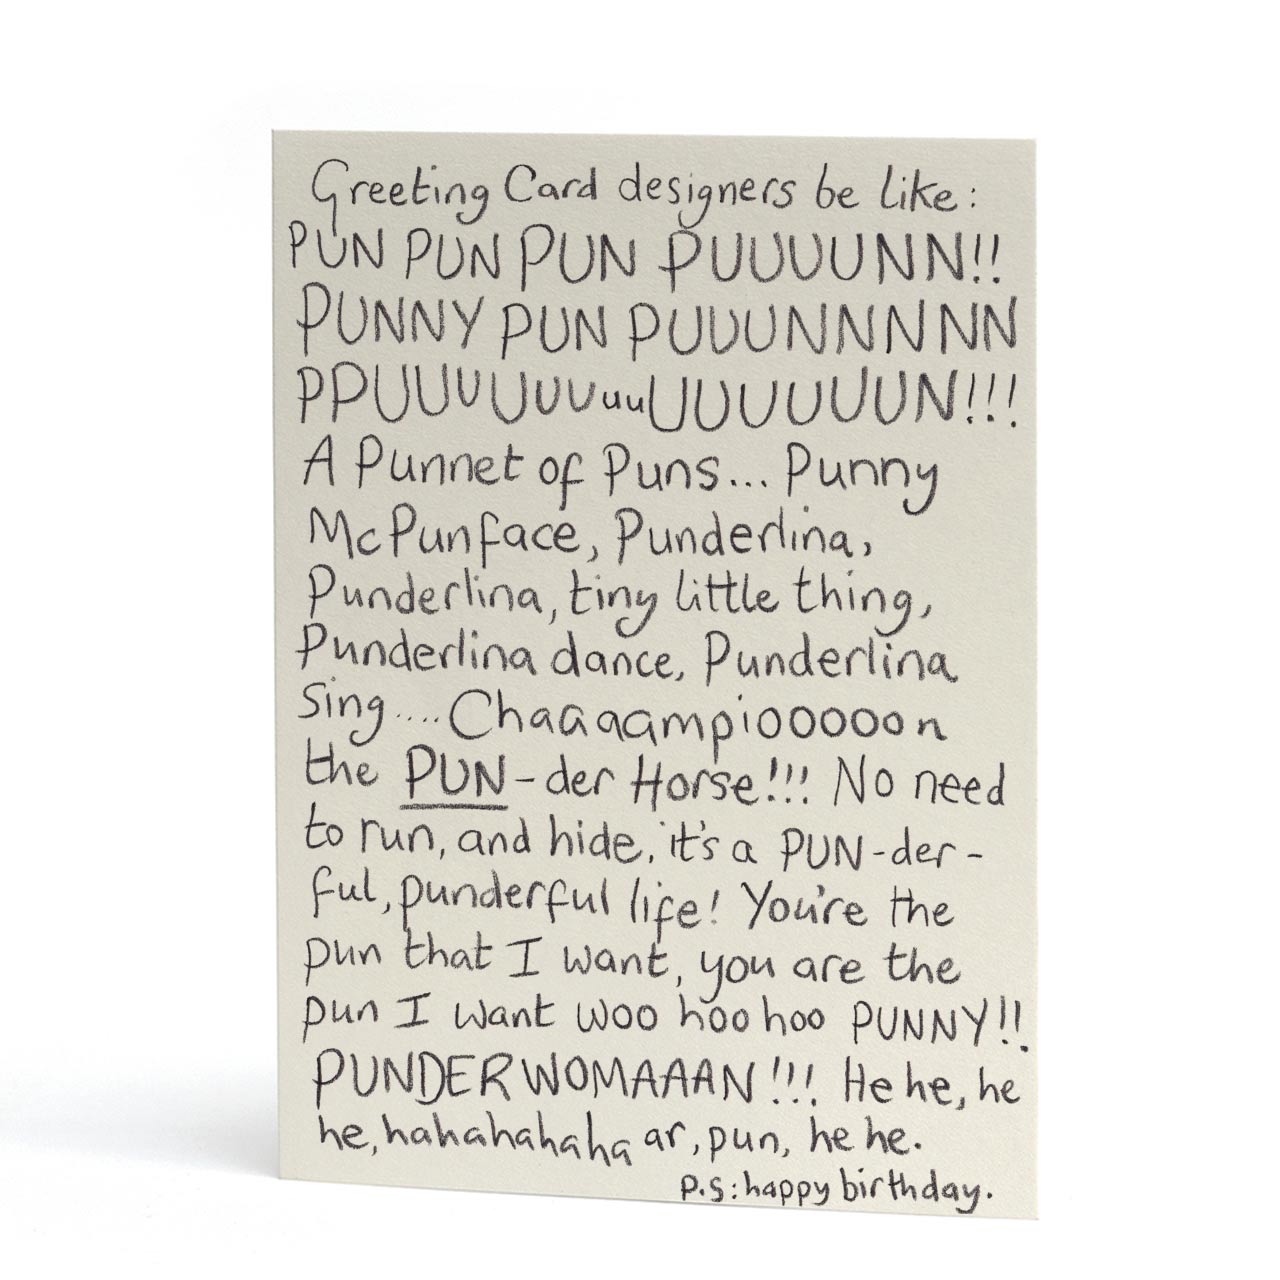 Greeting Card designers be like:
PUN PUN PUN PUUUUNN!!
PUNNY PUN PUUUNNNNNN
PPUUUUUUUuuUUUUUUUN!!!
A Punnet of Puns... Punny
McPunface, Punderlina,
Punderlina, tiny little thing,
Punderlina dance, Punderlina
sing.... Chaaaampiooooon
the PUN-der Horse!!! No need
to run, and hide, it's a PUN-der-
ful, punderful life! You're the
pun that I want, you are the
pun I want woo hoo hoo PUNNY!!
PUNDERWOMAAAN!!! He he, he
he, hahahahaha ar, pun, he he.
P.S: happy birthday.